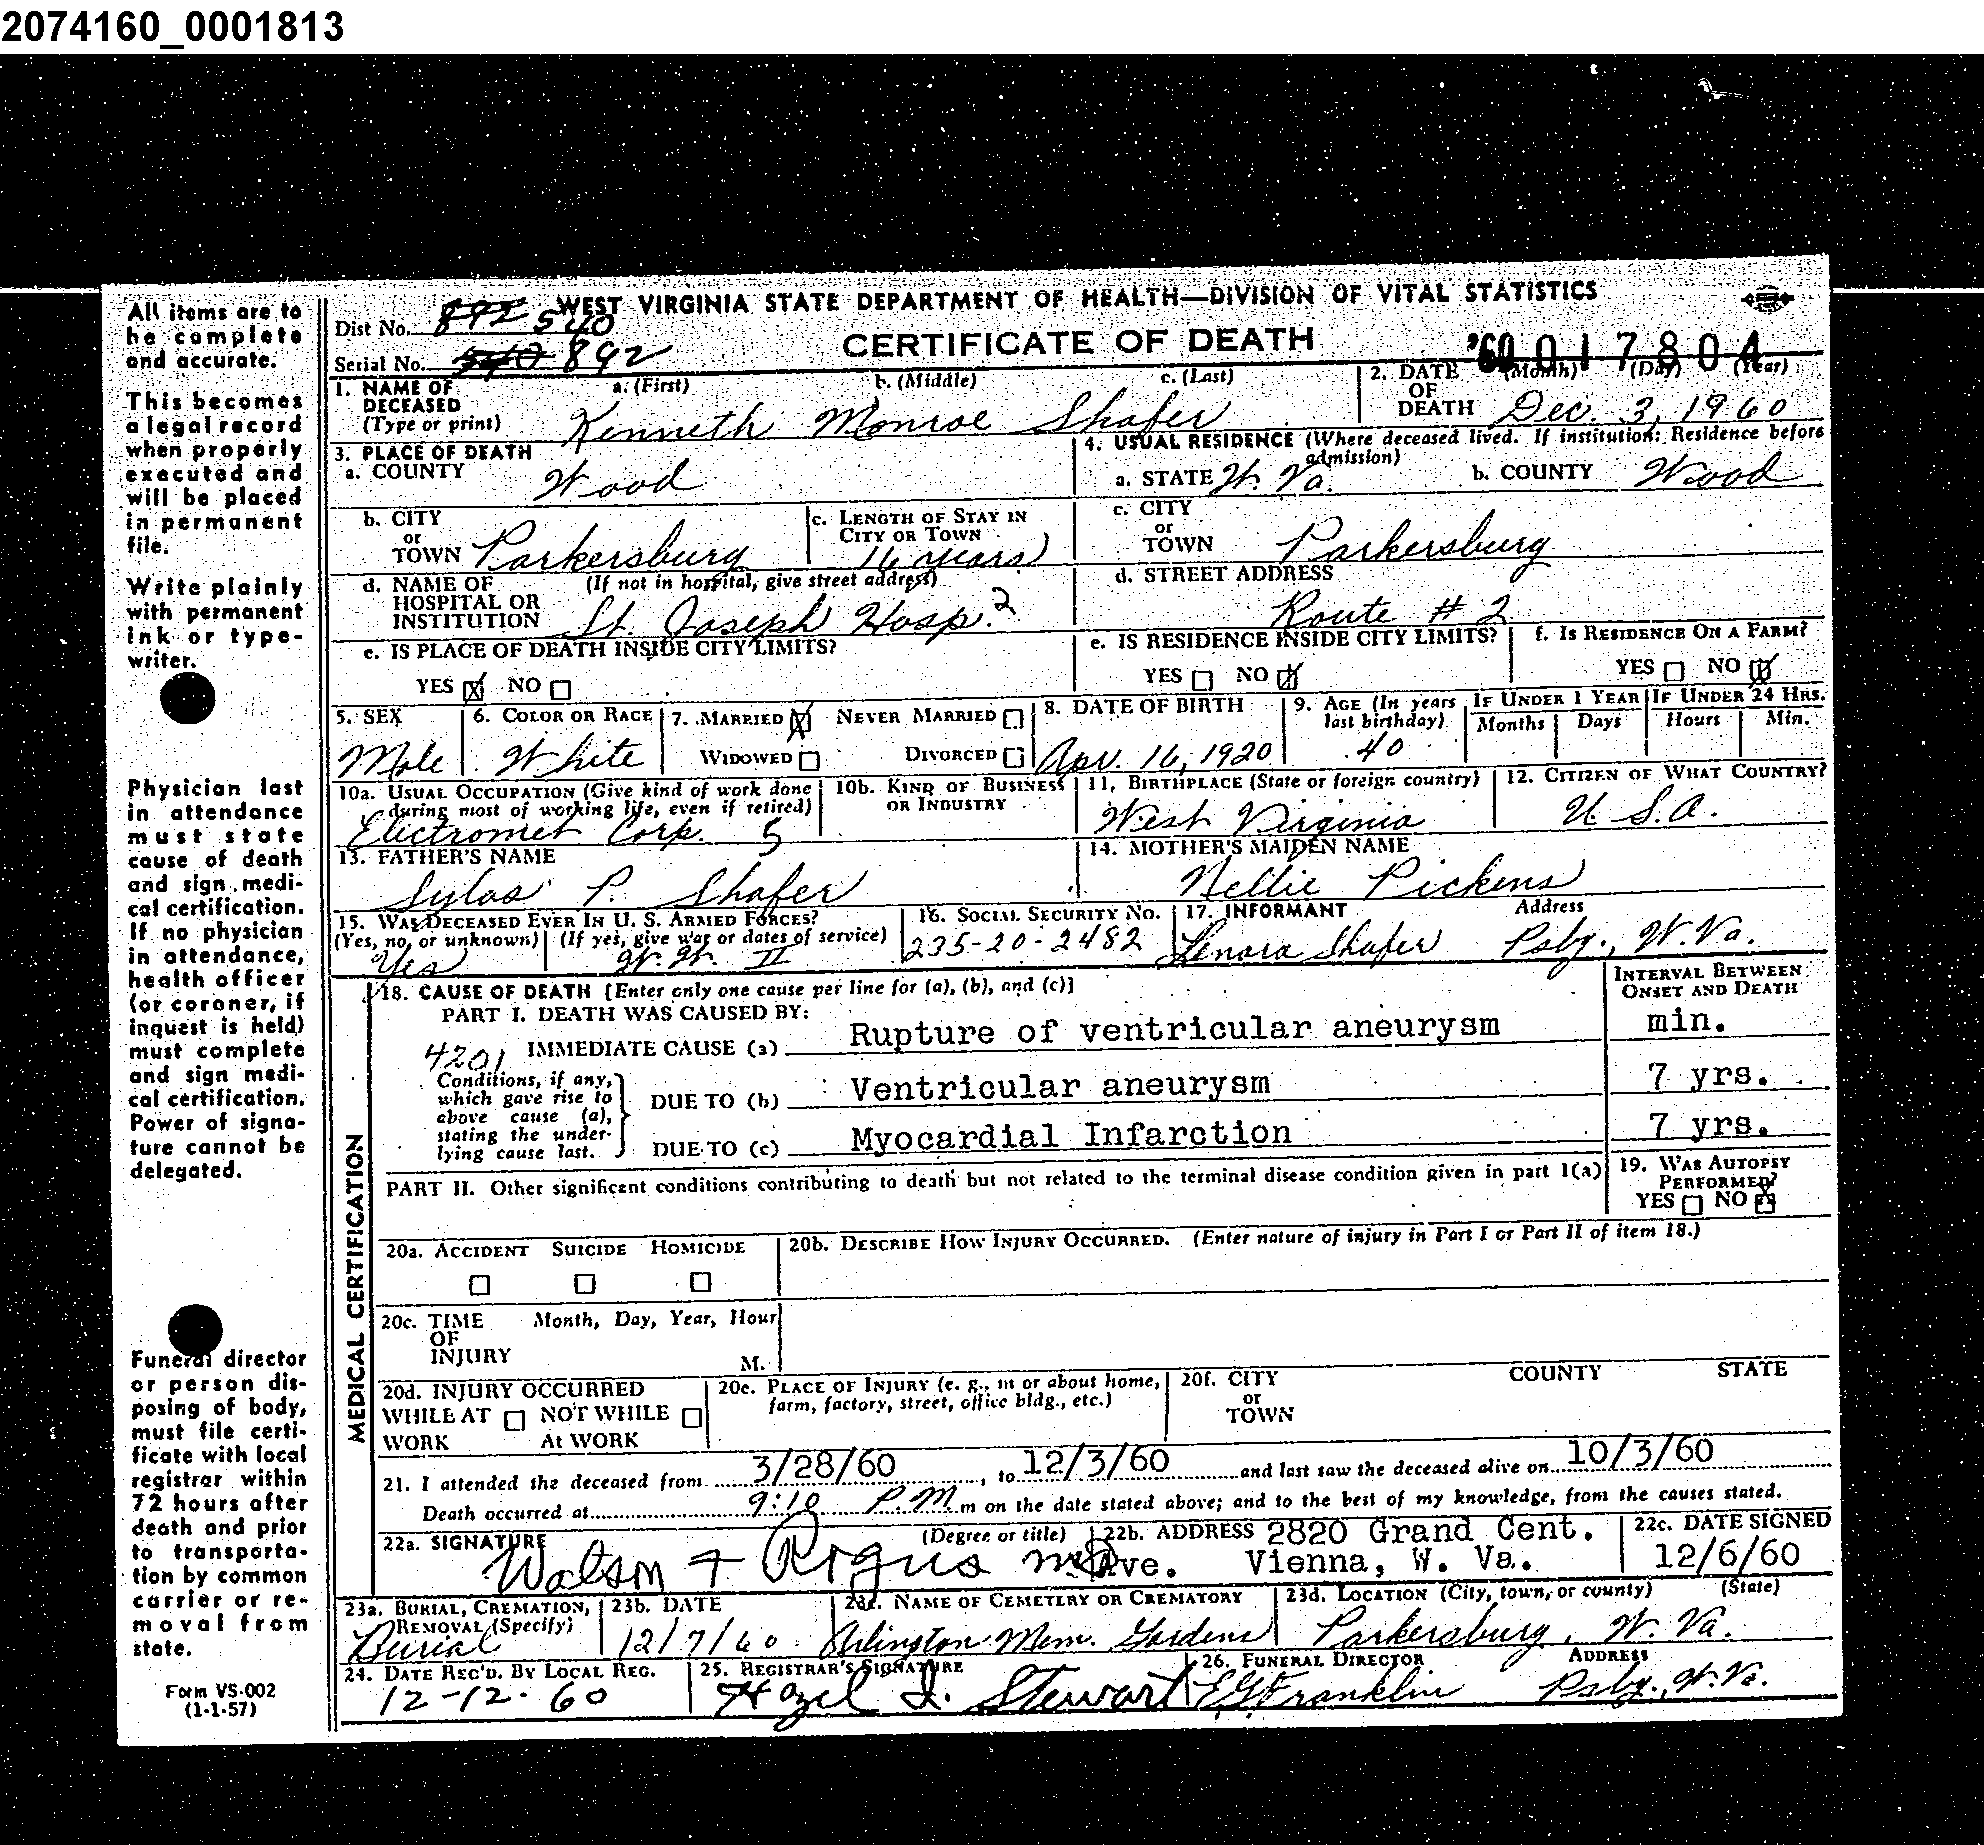 2074160_0001813
All items are to be complete and accurate.
This becomes a legal record when properly executed and will be placed in permanent file.
Write plainly with permanent ink or type-writer.
Physician last in attendance must state cause of death and sign medi-cal certification. If no physician in attendance, health officer (or coroner, if inquest is held) must complete and sign medi-cal certification. Power of signa-ture cannot be delegated.
Funeral director or person dis-posing of body, must file certi-ficate with local registrar within 72 hours after death and prior to transporta-tion by common carrier or re-moval from state.
Form VS-002
(1-1-57)
WEST VIRGINIA STATE DEPARTMENT OF HEALTH—DIVISION OF VITAL STATISTICS
Dist No. 892 540
CERTIFICATE OF DEATH
'60 017804
Serial No. 540 892
1. NAME OF DECEASED (Type or print) a. (First) b. (Middle) c. (Last)
Kenneth Monroe Shafer
2. DATE OF DEATH (Month) (Day) (Year)
Dec. 3, 1960
3. PLACE OF DEATH
a. COUNTY Wood
4. USUAL RESIDENCE (Where deceased lived. If institution: Residence before admission)
a. STATE W. Va. b. COUNTY Wood
b. CITY or TOWN Parkersburg
c. LENGTH OF STAY IN CITY OR TOWN 16 years
c. CITY or TOWN Parkersburg
d. NAME OF HOSPITAL OR INSTITUTION (If not in hospital, give street address)
St. Joseph Hosp. 2
d. STREET ADDRESS
Route # 2
e. IS PLACE OF DEATH INSIDE CITY LIMITS?
YES X NO
e. IS RESIDENCE INSIDE CITY LIMITS?
YES NO X
f. IS RESIDENCE ON A FARM?
YES NO X
5. SEX Male
6. COLOR OR RACE White
7. MARRIED X NEVER MARRIED
WIDOWED DIVORCED
8. DATE OF BIRTH Apr. 16, 1920
9. AGE (In years last birthday) 40
IF UNDER 1 YEAR Months Days
IF UNDER 24 HRS. Hours Min.
10a. USUAL OCCUPATION (Give kind of work done during most of working life, even if retired)
Electromet Corp. 5
10b. KIND OF BUSINESS OR INDUSTRY
11. BIRTHPLACE (State or foreign country)
West Virginia
12. CITIZEN OF WHAT COUNTRY?
U.S.A.
13. FATHER'S NAME
Sylas P. Shafer
14. MOTHER'S MAIDEN NAME
Nellie Pickens
15. WAS DECEASED EVER IN U. S. ARMED FORCES?
(Yes, no, or unknown) (If yes, give war or dates of service)
Yes W. W. II
16. SOCIAL SECURITY NO.
235-20-2482
17. INFORMANT Address
Lenora Shafer Psbg., W. Va.
MEDICAL CERTIFICATION
18. CAUSE OF DEATH [Enter only one cause per line for (a), (b), and (c)]
INTERVAL BETWEEN ONSET AND DEATH
PART I. DEATH WAS CAUSED BY:
4201 IMMEDIATE CAUSE (a) Rupture of ventricular aneurysm min.
Conditions, if any, which gave rise to above cause (a), stating the under-lying cause last.
DUE TO (b) Ventricular aneurysm 7 yrs.
DUE TO (c) Myocardial Infarction 7 yrs.
PART II. Other significant conditions contributing to death but not related to the terminal disease condition given in part I(a)
19. WAS AUTOPSY PERFORMED?
YES NO X
20a. ACCIDENT SUICIDE HOMICIDE
20b. DESCRIBE HOW INJURY OCCURRED. (Enter nature of injury in Part I or Part II of item 18.)
20c. TIME OF INJURY Month, Day, Year, Hour
M.
20d. INJURY OCCURRED
WHILE AT WORK NOT WHILE At WORK
20e. PLACE OF INJURY (e. g., in or about home, farm, factory, street, office bldg., etc.)
20f. CITY or TOWN COUNTY STATE
21. I attended the deceased from 3/28/60, to 12/3/60 and last saw the deceased alive on 10/3/60
Death occurred at 9:10 P.M. m on the date stated above; and to the best of my knowledge, from the causes stated.
22a. SIGNATURE (Degree or title)
22b. ADDRESS 2820 Grand Cent. Ave. Vienna, W. Va.
22c. DATE SIGNED
12/6/60
23a. BURIAL, CREMATION, REMOVAL (Specify)
Burial
23b. DATE
12/7/60
23c. NAME OF CEMETERY OR CREMATORY
Arlington Mem. Gardens
23d. LOCATION (City, town, or county) (State)
Parkersburg, W. Va.
24. DATE REC'D. BY LOCAL REG.
12-12-60
25. REGISTRAR'S SIGNATURE
Hazel I. Stewart
26. FUNERAL DIRECTOR ADDRESS
E G Franklin Psbg., W. Va.